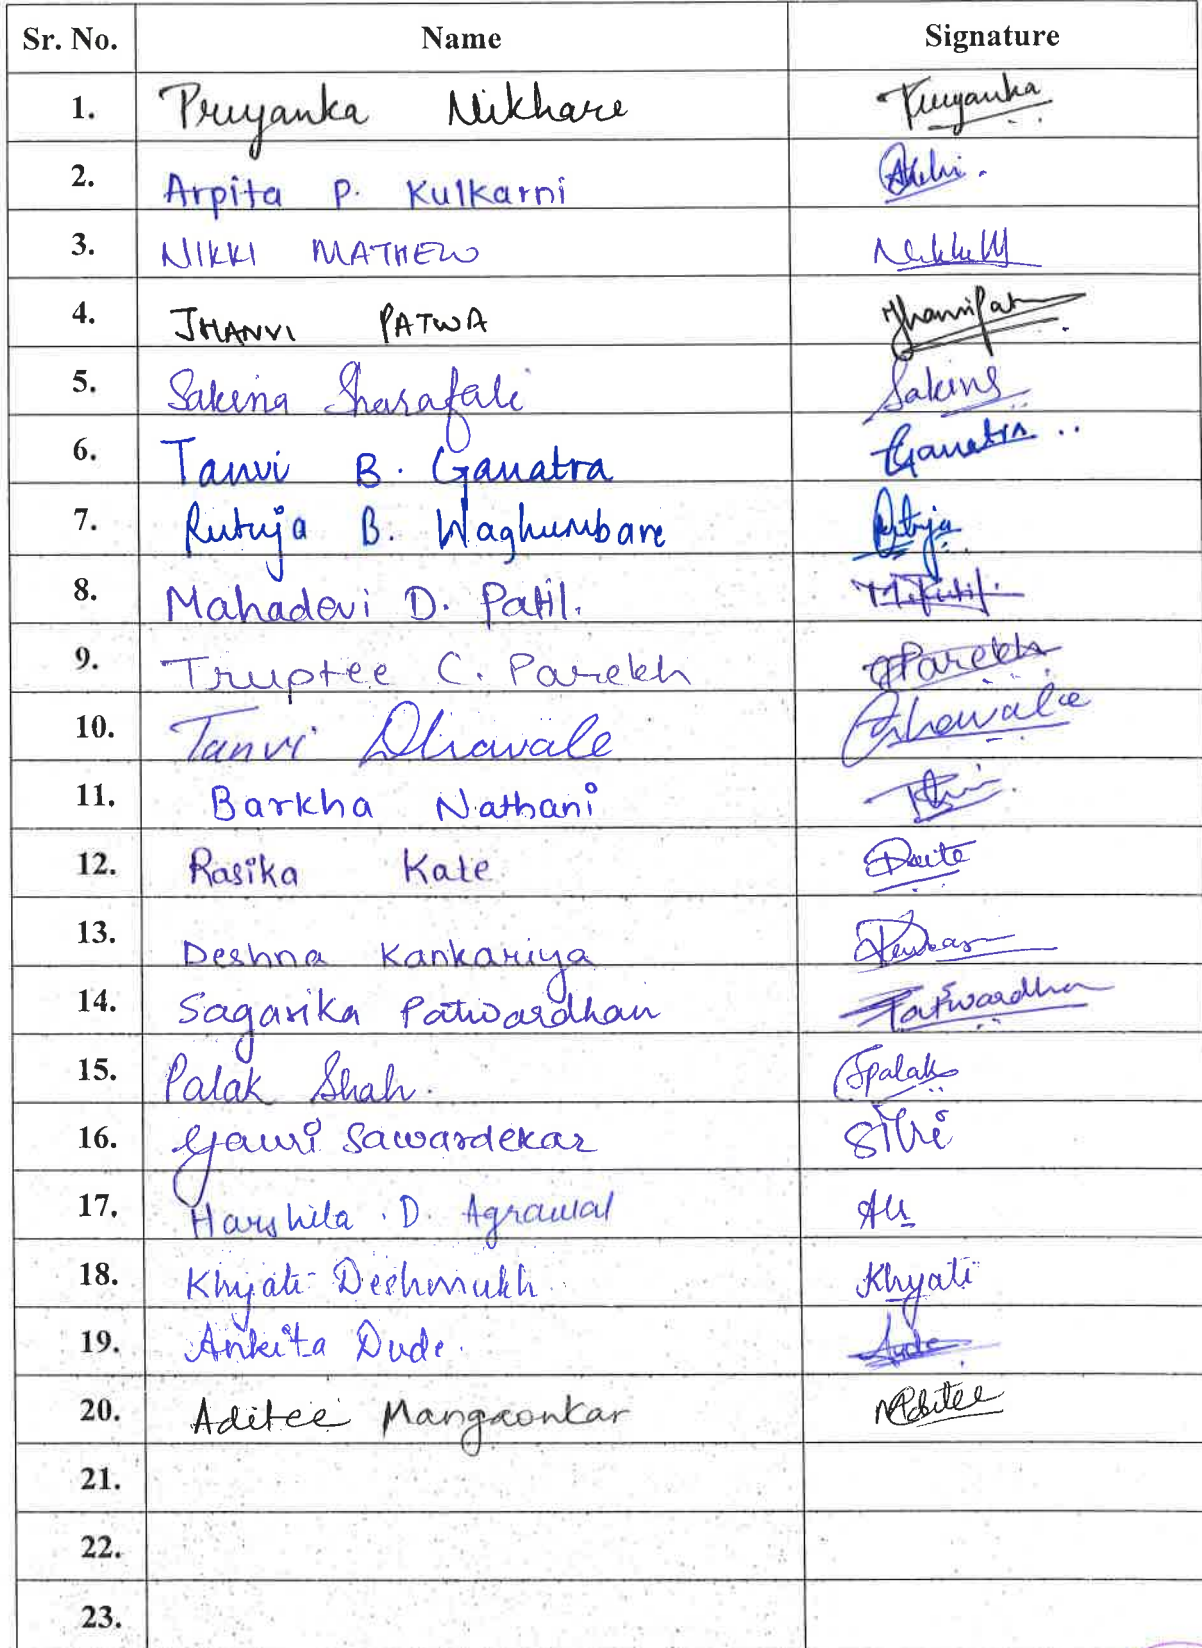 Sr. No. Name Signature
1. Priyanka Nikhare Priyanka
2. Arpita P. Kulkarni
3. NIKKI MATHEW NikkiM
4. JHANVI PATWA
5. Sakina Sharafali Sakina
6. Tanvi B. Ganatra Ganatra
7. Rutuja B. Waghumbare Rutuja
8. Mahadevi D. Patil. M.Patil.
9. Truptee C. Parekh Parekh
10. Tanvi Dhawale Dhawale
11. Barkha Nathani
12. Rasika Kate
13. Deshna Kankariya
14. Sagarika Patwardhan Patwardhan
15. Palak Shah. Spalak
16. Gauri Sawardekar
17. Harshila . D. Agrawal
18. Khyati Deshmukh Khyati
19. Ankita Dude. Dude
20. Aditee Mangaonkar Aditee
21.
22.
23.